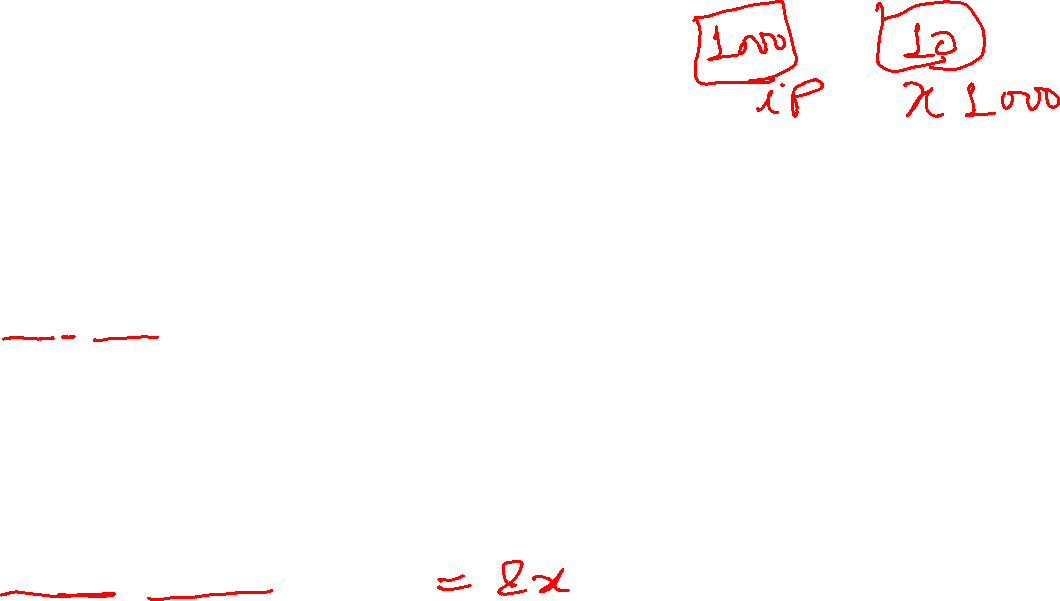 1000 10
ip x 1000
= 2x